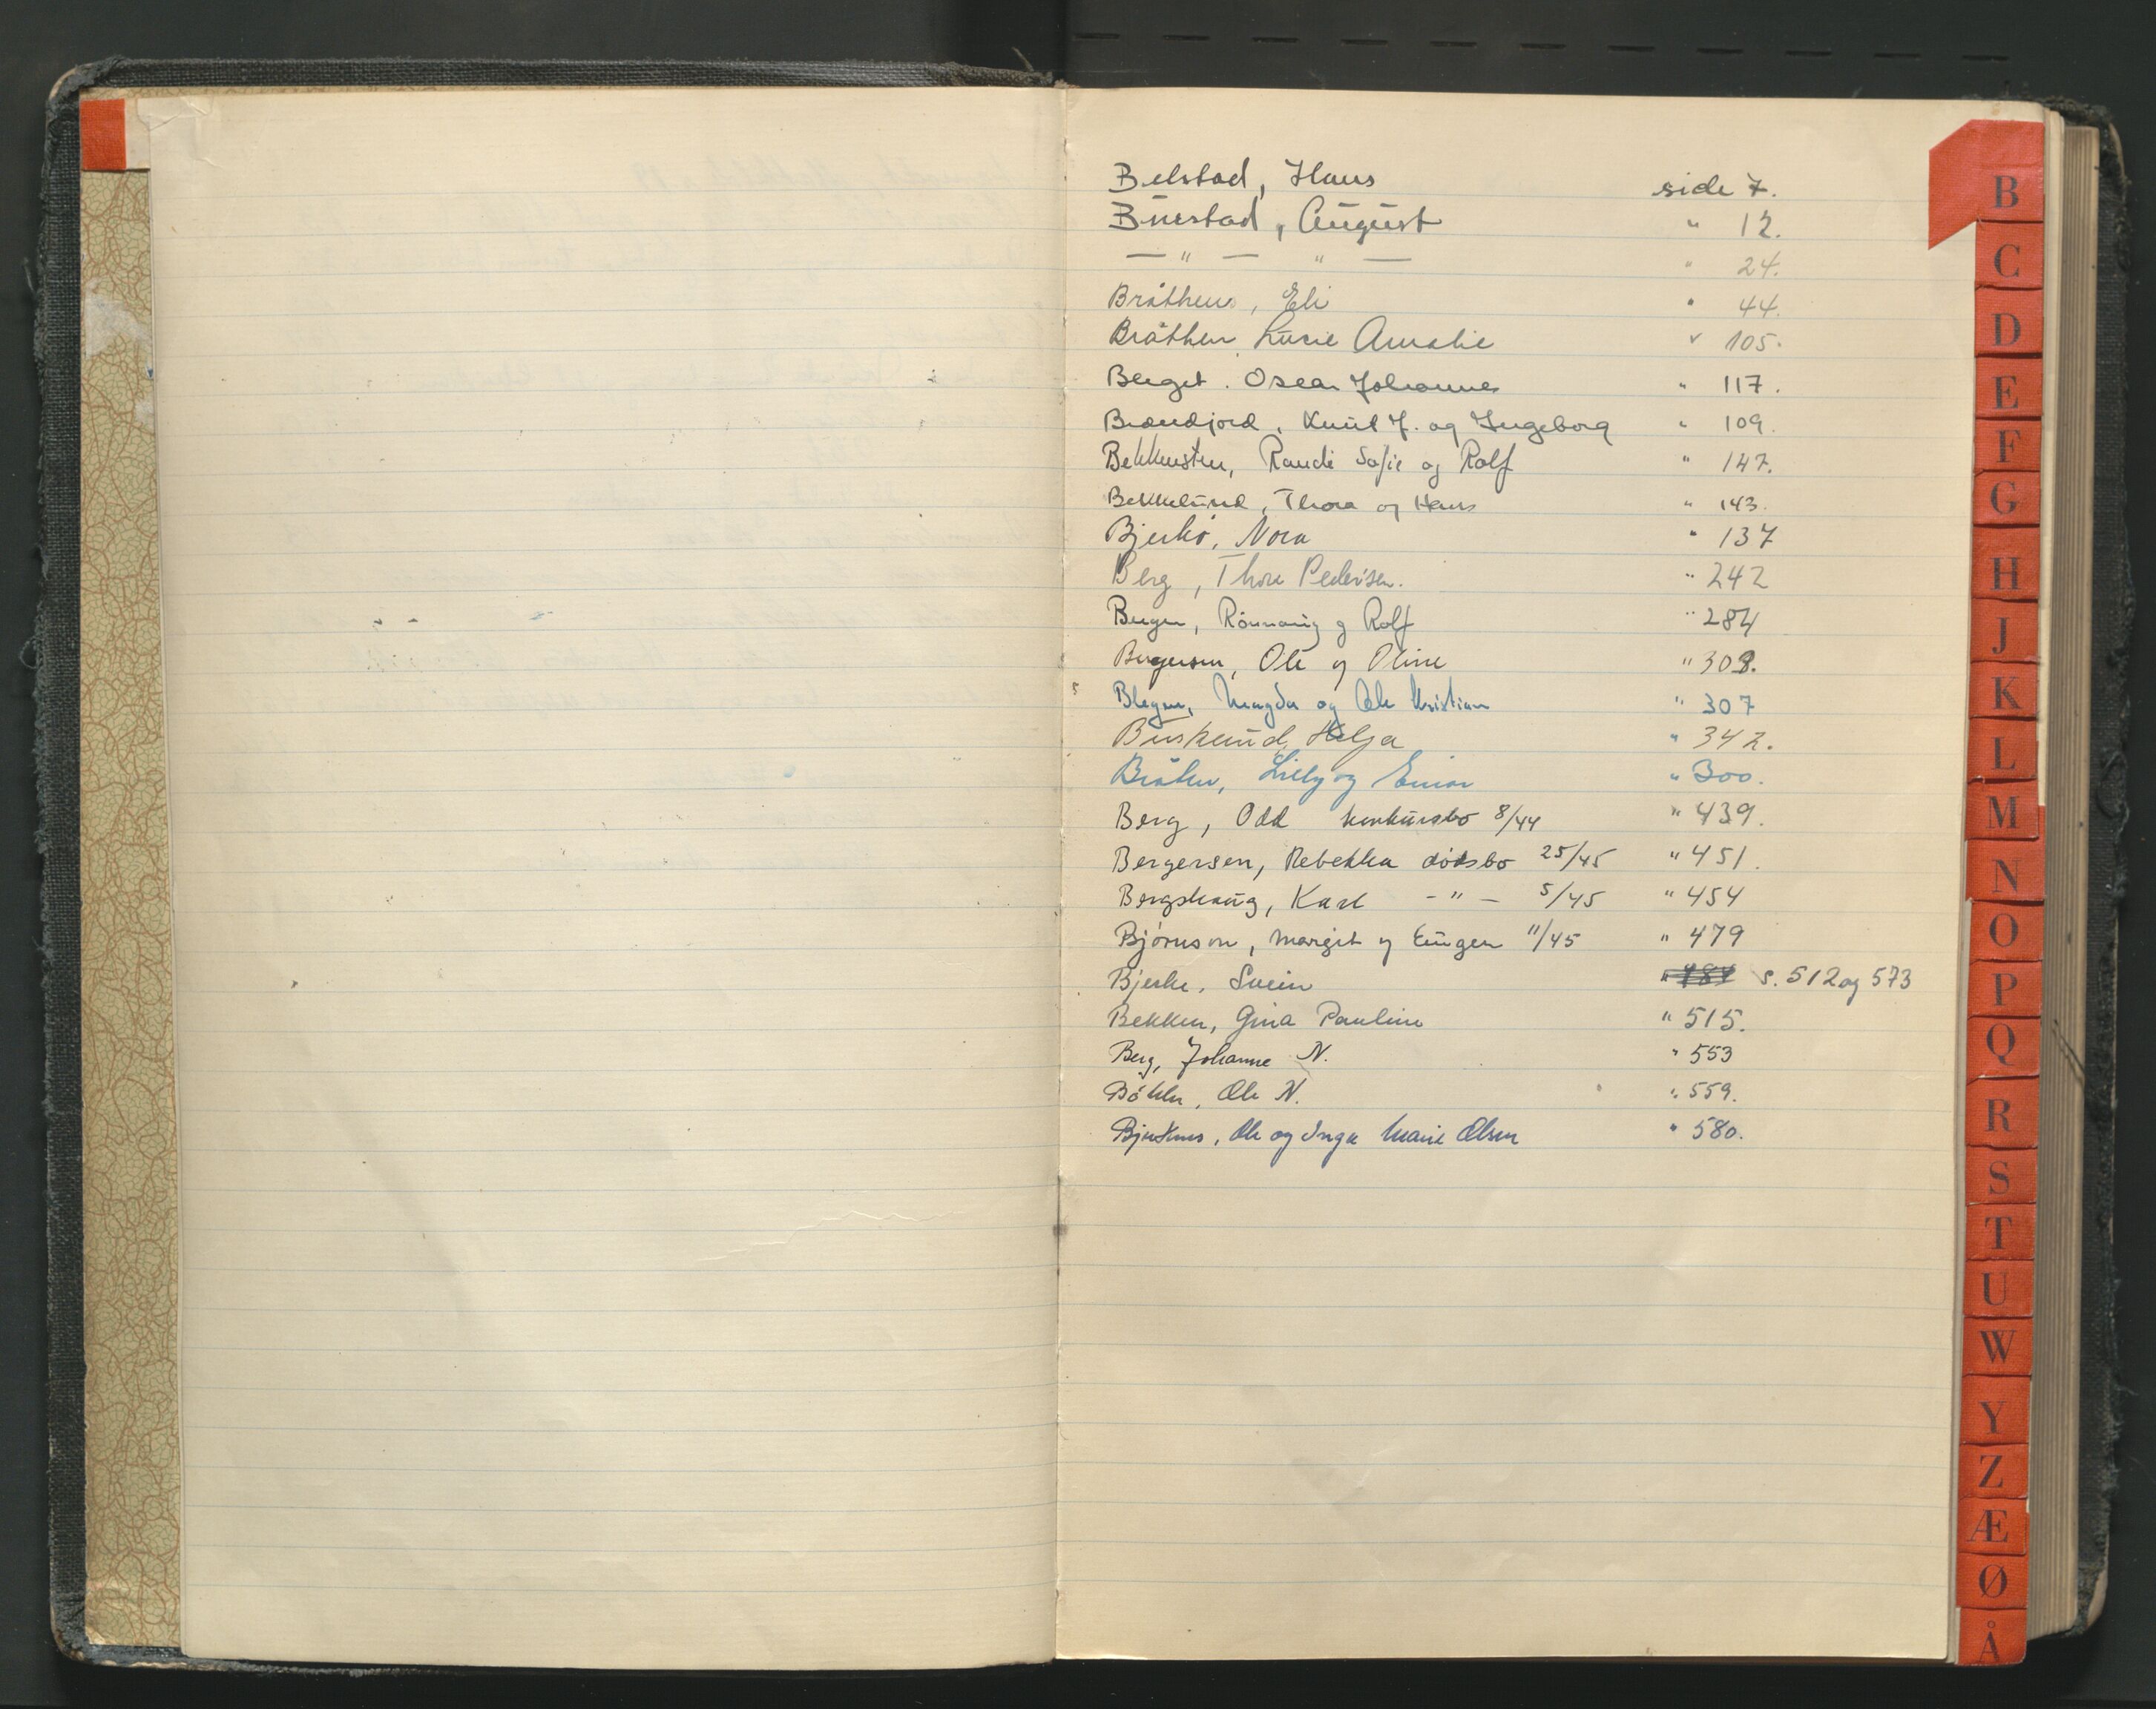 Belstad, Hans side 7.
Buestad, August " 12.
— " — " — " 24.
Bråthen, Eli " 44.
Bråthen, Lusie Amalie " 105.
Berget. Oscar Johannes " 117.
Brændjord, Knut J. og Ingeborg " 109.
Bekkensten, Randi Sofie og Rolf " 147.
Bekkelund, Thora og Hans " 143.
Bjerkø, Nora " 137
Berg, Thore Pedersen. " 242
Bergen, Rønnaug og Rolf " 284
Bergersen, Ole og Oline " 308.
Blegen, Magda og Ole Kristian " 307
Buskerud, Helga " 342.
Bråten, Lilly og Einar " 300.
Berg, Odd konkursbo 8/44 " 439.
Bergersen, Rebekka dødsbo 25/45 " 451.
Bergshaug, Karl - " - 5/45 " 454
Bjørnson, Margit og Eugen 11/45 " 479
Bjerke, Svein " 484 s. 512 og 573
Bekken, Gina Pauline " 515.
Berg, Johanne N. " 553
Bøhler, Ole N. " 559.
Bjerknes, Ole og Inga Marie Olsen " 580.
B
C
D
E
F
G
H
J
K
L
M
N
O
P
Q
R
S
T
U
W
Y
Z
Æ
Ø
Å